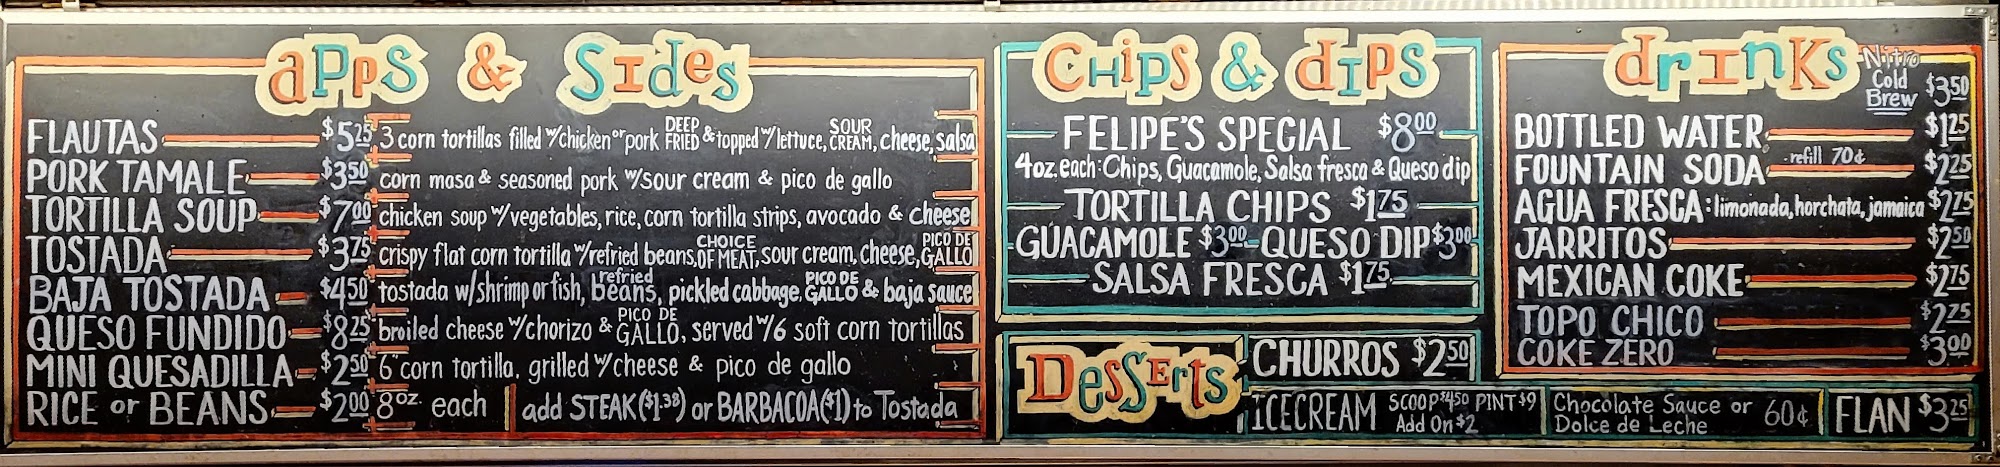 apps & Sides
FLAUTAS $5.25 3 corn tortillas filled w/chicken or pork DEEP FRIED & topped w/lettuce, SOUR CREAM, cheese, salsa
PORK TAMALE $3.50 corn masa & seasoned pork w/sour cream & pico de gallo
TORTILLA SOUP $7.00 chicken soup w/vegetables, rice, corn tortilla strips, avocado & cheese
TOSTADA $3.75 crispy flat corn tortilla w/refried beans, CHOICE OF MEAT, sour cream, cheese, PICO DE GALLO
BAJA TOSTADA $4.50 tostada w/shrimp or fish, refried beans, pickled cabbage, PICO DE GALLO & baja sauce
QUESO FUNDIDO $8.25 broiled cheese w/chorizo & PICO DE GALLO, served w/6 soft corn tortillas
MINI QUESADILLA $2.50 6" corn tortilla, grilled w/cheese & pico de gallo
RICE or BEANS $2.00 8oz. each add STEAK ($1.38) or BARBACOA ($1) to Tostada
Chips & dips
FELIPE'S SPECIAL $8.00
4oz. each: Chips, Guacamole, Salsa fresca & Queso dip
TORTILLA CHIPS $1.75
GUACAMOLE $3.00 QUESO DIP $3.00
SALSA FRESCA $1.75
Desserts
CHURROS $2.50
ICECREAM SCOOP $4.50 PINT $9
Add On $2
Chocolate Sauce or
Dolce de Leche 60¢
FLAN $3.25
drinks
Nitro Cold Brew $3.50
BOTTLED WATER $1.25
FOUNTAIN SODA refill 70¢ $2.25
AGUA FRESCA: limonada, horchata, jamaica $2.75
JARRITOS $2.50
MEXICAN COKE $2.75
TOPO CHICO $2.75
COKE ZERO $3.00